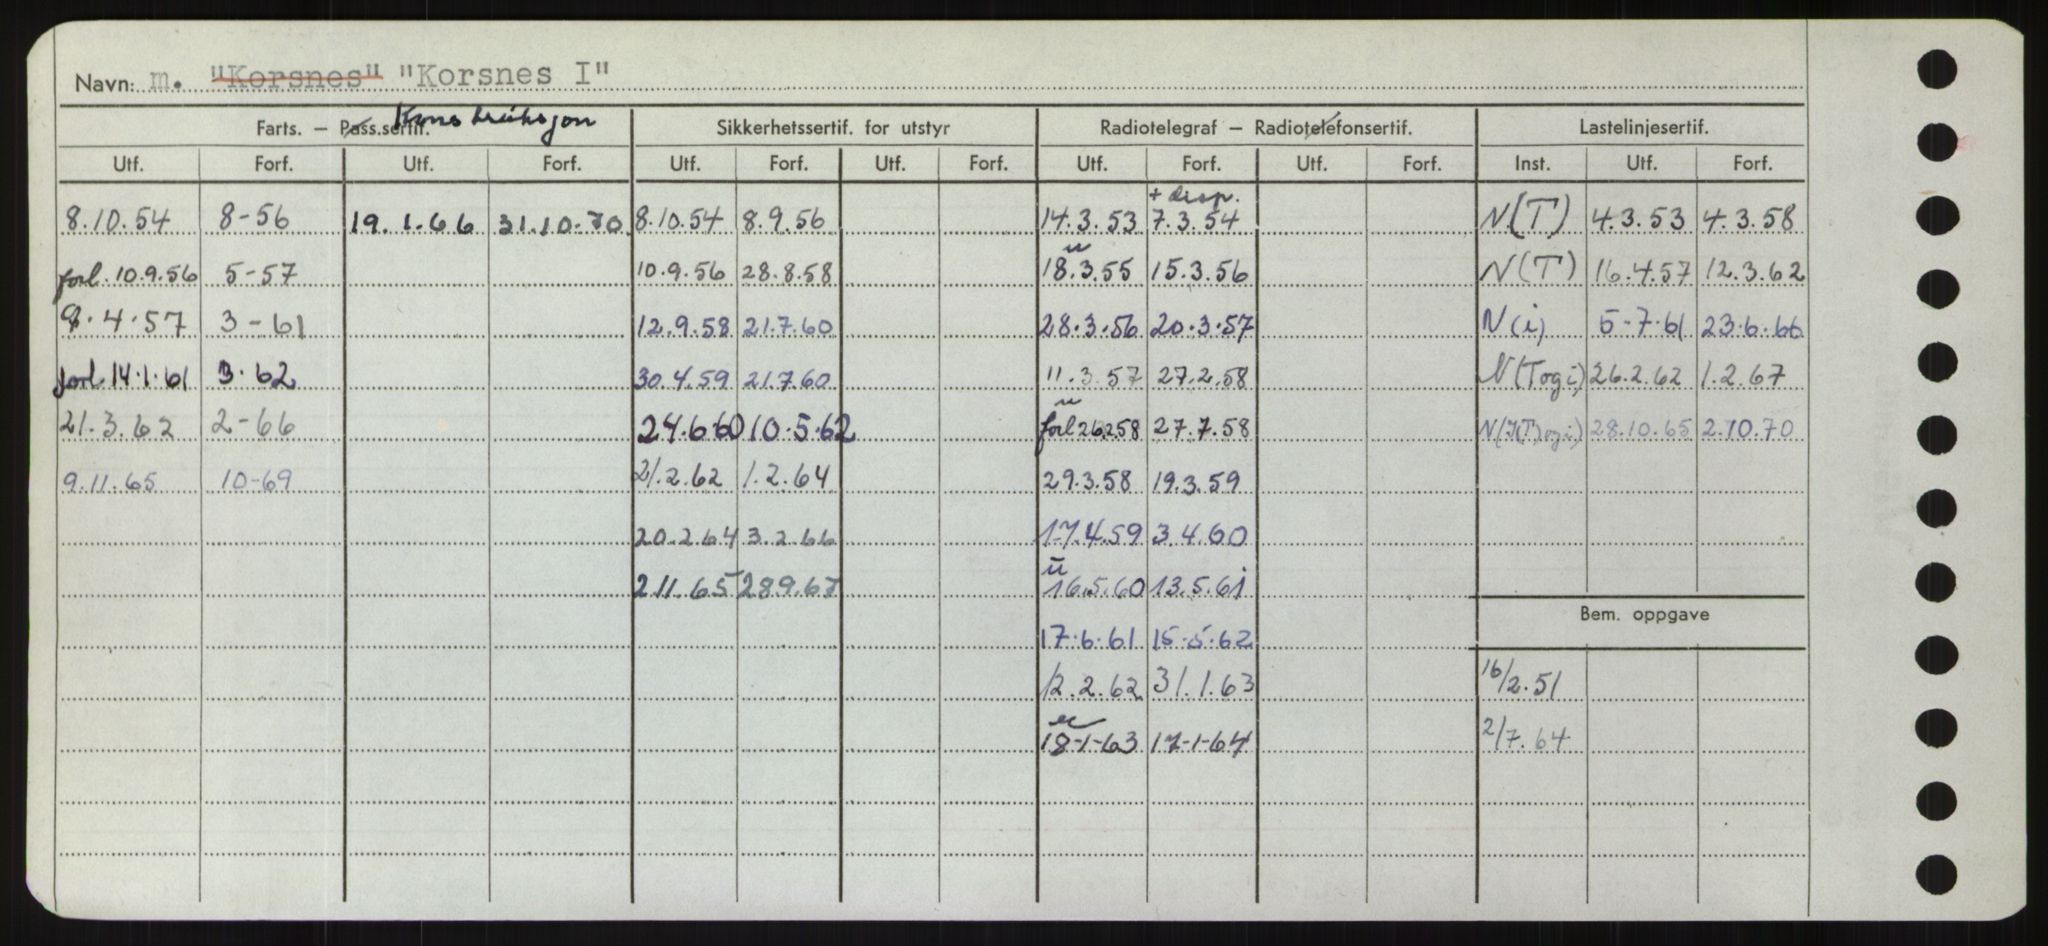 Navn: m. "Korsnes" "Korsnes I"
Farts. – Pass.sertif. Konstruksjon Sikkerhetssertif. for utstyr Radiotelegraf – Radiotelefonsertif. Lastelinjesertif.
Utf. Forf. Utf. Forf. Utf. Forf. Utf. Forf. Utf. Forf. Utf. Forf. Inst. Utf. Forf.
+ disp.
8.10.54 8-56 19.1.66 31.10.70 8.10.54 8.9.56 14.3.53 7.3.54 N(T) 4.3.53 4.3.58
u
forl. 10.9.56 5-57 10.9.56 28.8.58 18.3.55 15.3.56 N(T) 16.4.57 12.3.62
9.4.57 3-61 12.9.58 21.7.60 28.3.56 20.3.57 N(i) 5-7.61 23.6.66
forl. 14.1.61 3.62 30.4.59 21.7.60 11.3.57 27.2.58 N(Togi) 26.2.62 1.2.67
u
21.3.62 2-66 24.6.60 10.5.62 forl 26.2.58 27.7.58 28.10.65 2.10.70
9.11.65 10-69 21.2.62 1.2.64 29.3.58 19.3.59
20.2.64 3.2.66 17.4.59 3.4.60
u
2.11.65 28.9.67 16.5.60 13.5.61
Bem. oppgave
17.6.61 15-5.62
12.2.62 31.1.63 16/2.51
18-1-63 17-1-64 2/7.64